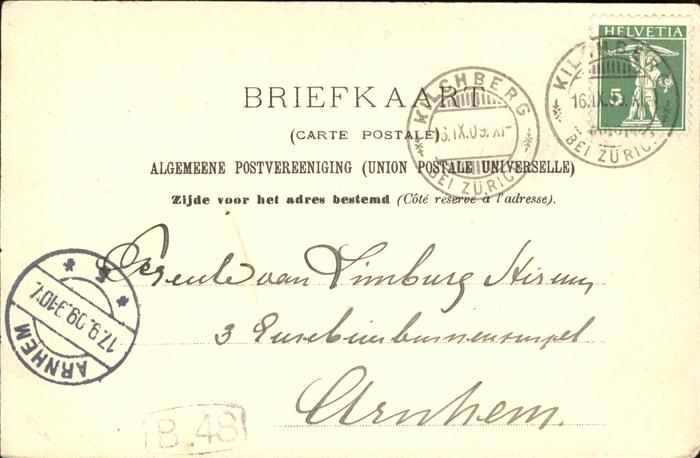 HELVETIA
5
KILCHBERG
16.IX.09.XI-
BEI ZÜRICH
KILCHBERG
16.IX.09.XI-
BEI ZÜRICH
BRIEFKAART
(CARTE POSTALE)
ALGEMEENE POSTVEREENIGING (UNION POSTALE UNIVERSELLE)
Zijde voor het adres bestemd (Côté réservé à l'adresse).
van Limburg Stirum
3 Eusebiusbinnensingel
Arnhem.
* 5 *
17.9.09.9-10V.
ARNHEM
B.48